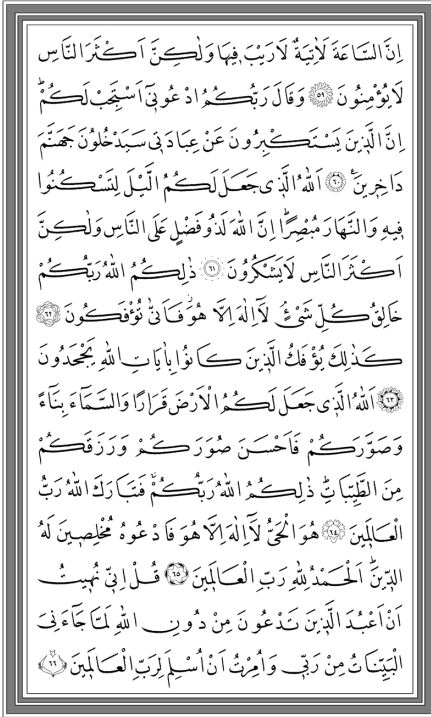 اِنَّ السَّاعَةَ لَاٰتِيَةٌ لَا رَيْبَ فٖيهَا وَلٰكِنَّ اَكْثَرَ النَّاسِ
لَا يُؤْمِنُونَ ﴿٥٩﴾ وَقَالَ رَبُّكُمُ ادْعُونٖٓي اَسْتَجِبْ لَكُمْؕ
اِنَّ الَّذٖينَ يَسْتَكْبِرُونَ عَنْ عِبَادَتٖي سَيَدْخُلُونَ جَهَنَّمَ
دَاخِرٖينَࣖ ﴿٦٠﴾ اَللّٰهُ الَّذٖي جَعَلَ لَكُمُ الَّيْلَ لِتَسْكُنُوا
فٖيهِ وَالنَّهَارَ مُبْصِرًاؕ اِنَّ اللّٰهَ لَذُو فَضْلٍ عَلَى النَّاسِ وَلٰكِنَّ
اَكْثَرَ النَّاسِ لَا يَشْكُرُونَ ﴿٦١﴾ ذٰلِكُمُ اللّٰهُ رَبُّكُمْ
خَالِقُ كُلِّ شَيْءٍۘ لَٓا اِلٰهَ اِلَّا هُوَؗ فَاَنّٰى تُؤْفَكُونَ ﴿٦٢﴾
كَذٰلِكَ يُؤْفَكُ الَّذٖينَ كَانُوا بِاٰيَاتِ اللّٰهِ يَجْحَدُونَ
﴿٦٣﴾ اَللّٰهُ الَّذٖي جَعَلَ لَكُمُ الْاَرْضَ قَرَارًا وَالسَّمَٓاءَ بِنَٓاءً
وَصَوَّرَكُمْ فَاَحْسَنَ صُوَرَكُمْ وَرَزَقَكُمْ
مِنَ الطَّيِّبَاتِؕ ذٰلِكُمُ اللّٰهُ رَبُّكُمْۚ فَتَبَارَكَ اللّٰهُ رَبُّ
الْعَالَمٖينَ ﴿٦٤﴾ هُوَ الْحَيُّ لَٓا اِلٰهَ اِلَّا هُوَ فَادْعُوهُ مُخْلِصٖينَ لَهُ
الدّٖينَؕ اَلْحَمْدُ لِلّٰهِ رَبِّ الْعَالَمٖينَ ﴿٦٥﴾ قُلْ اِنّٖي نُهٖيتُ
اَنْ اَعْبُدَ الَّذٖينَ تَدْعُونَ مِنْ دُونِ اللّٰهِ لَمَّا جَٓاءَنِيَ
الْبَيِّنَاتُ مِنْ رَبّٖي وَاُمِرْتُ اَنْ اُسْلِمَ لِرَبِّ الْعَالَمٖينَ ﴿٦٦﴾